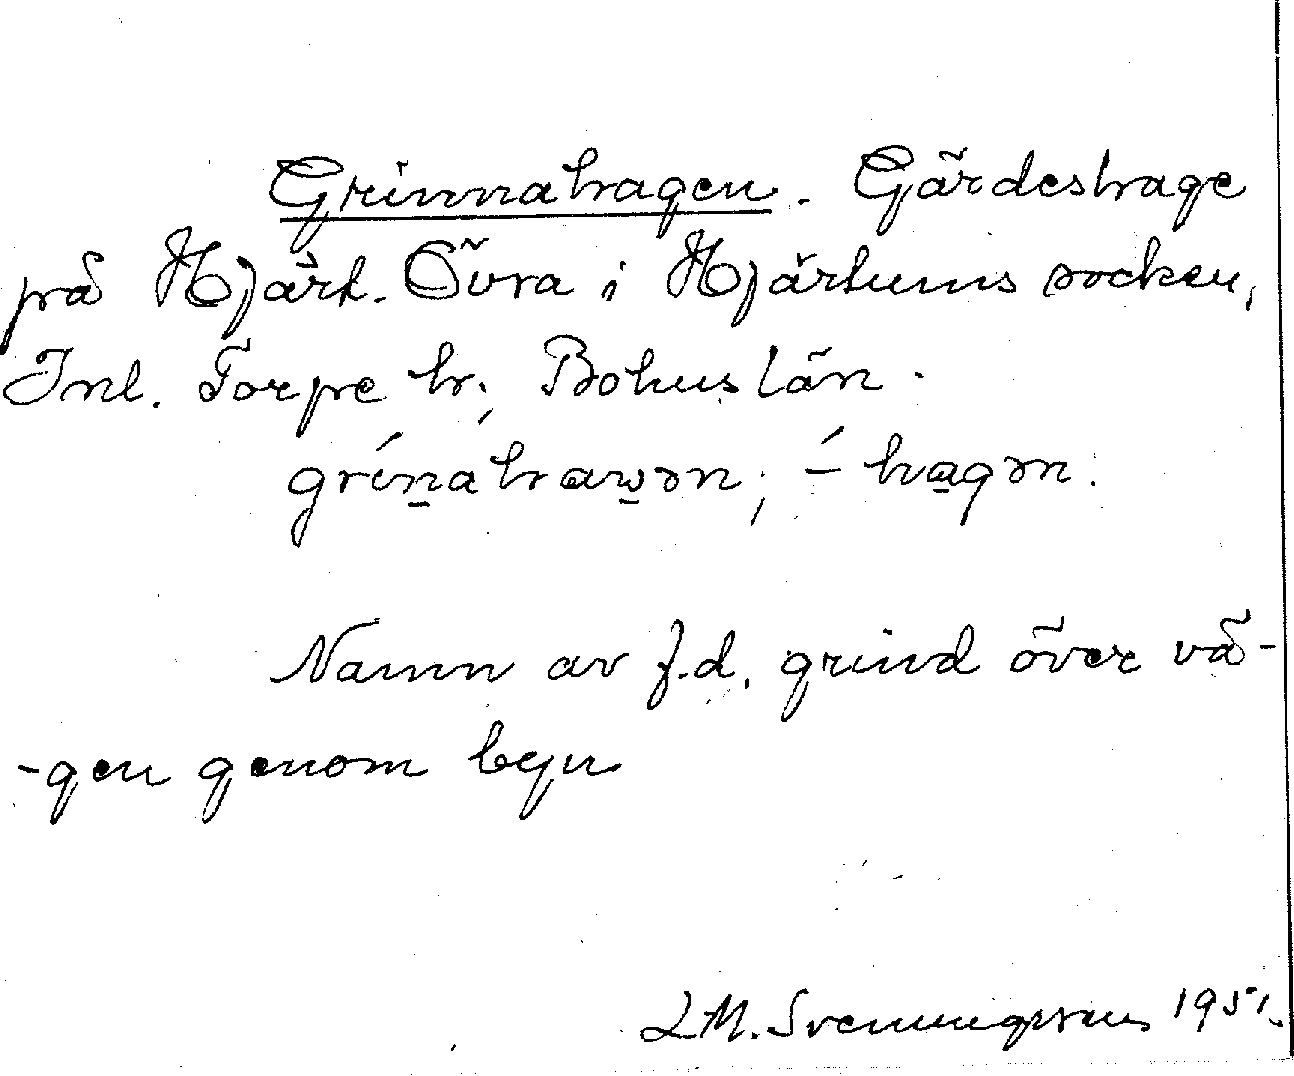 Grinnahagen. Gärdeshage
på Hjärt. Övra i Hjärtums socken,
Inl. Torpe hr; Bohuslän.
grínahawən; ´- hagən.
Namn av f.d. grind över vä-
-gen genom byn
L M. Svenungsson 1951.